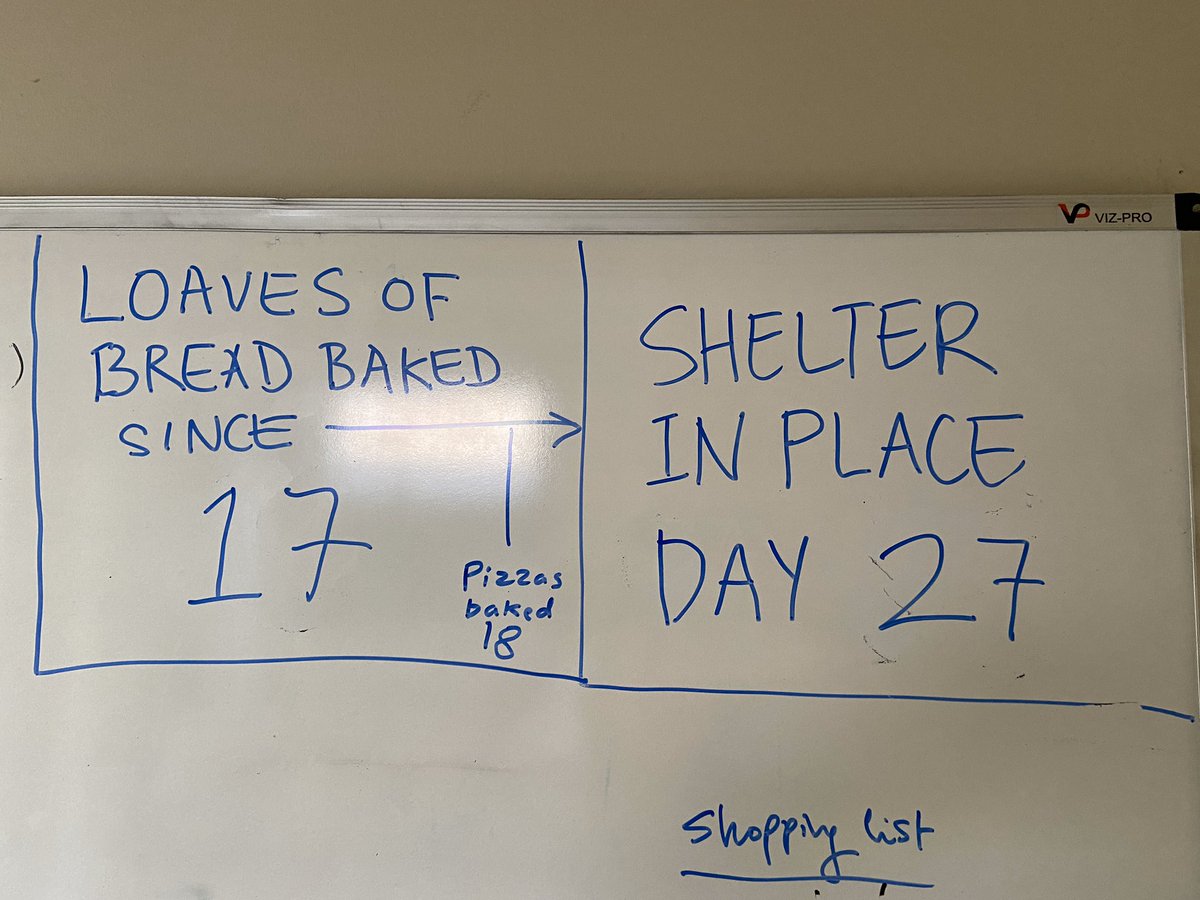 VP VIZ-PRO
LOAVES OF
BREAD BAKED
SINCE
17
Pizzas
baked
18
SHELTER
IN PLACE
DAY 27
Shopping list